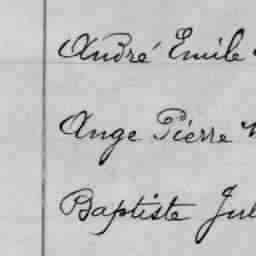 André Emile
Ange Pierre
Baptiste Jul